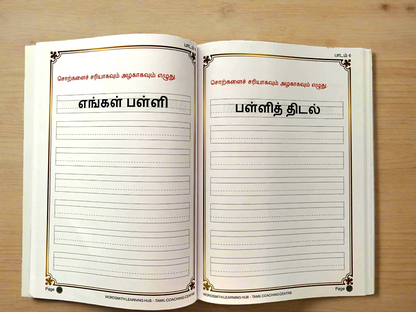 பாடம் 6
சொற்களைச் சரியாகவும் அழகாகவும் எழுது.
எங்கள் பள்ளி
Page
WORDSMITH LEARNING HUB - TAMIL COACHING CENTRE
பாடம் 6
சொற்களைச் சரியாகவும் அழகாகவும் எழுது.
பள்ளித் திடல்
WORDSMITH LEARNING HUB - TAMIL COACHING CENTRE
Page